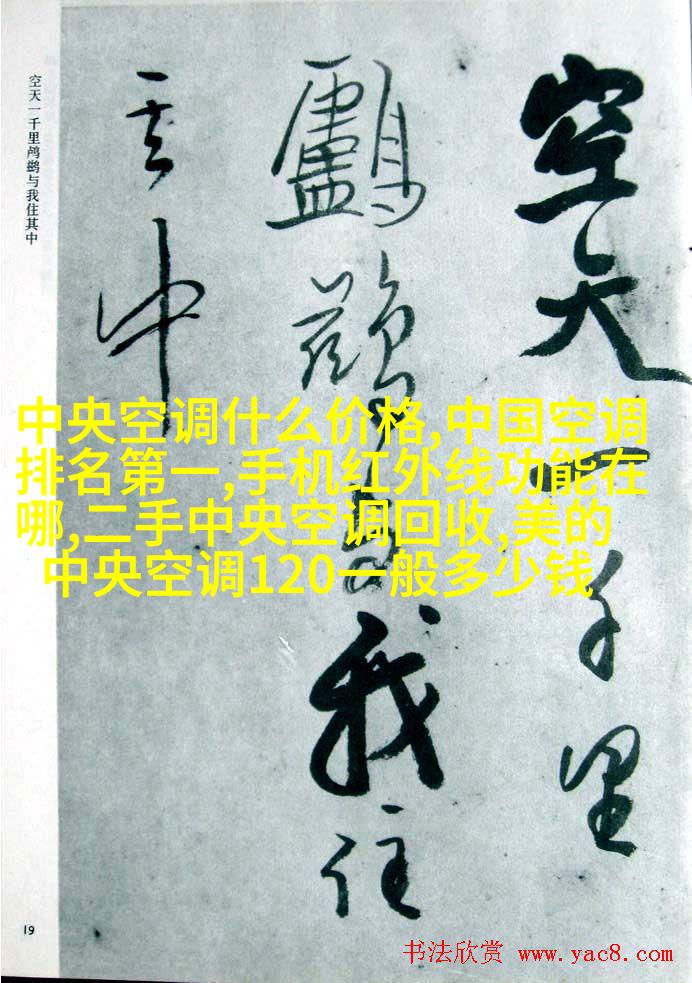 空天一千里
鸕鷀与我住
其中
空天一千里鸬鹚与我住其中
中央空调什么价格,中国空调
排名第一,手机红外线功能在
哪,二手中央空调回收,美的
中央空调120一般多少钱
19
书法欣赏 www.yac8.com